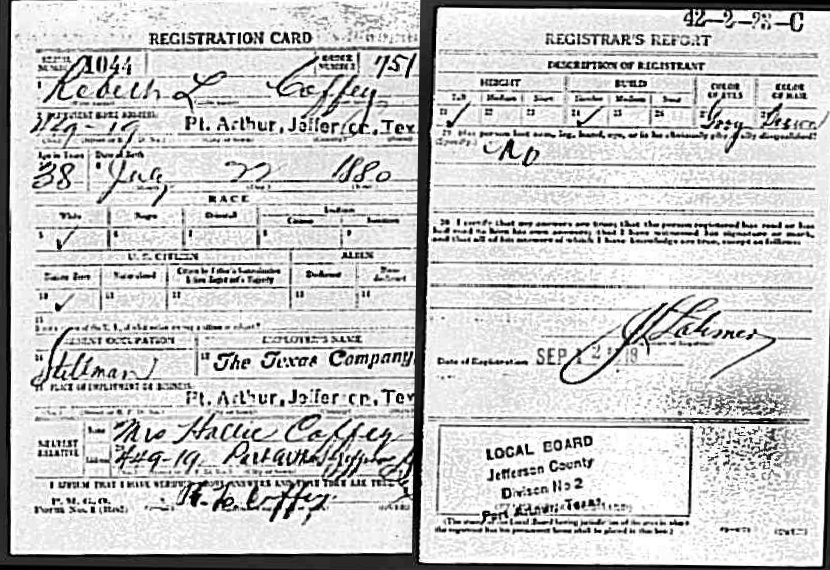 REGISTRATION CARD
SERIAL NUMBER 1044 ORDER NUMBER 751
L Coffey
PERMANENT HOME ADDRESS:
449-19 Pt. Arthur, Jefferson, Tex
Age in Years Date of Birth
38 22 1880
RACE
White Negro Oriental Indian
Citizen
5 6 7 8 9
U. S. CITIZEN ALIEN
Native Born Naturalized Declared Non-declared
10 11 12 13 14
15
PRESENT OCCUPATION EMPLOYER'S NAME
16 Stillman The Texas Company
PLACE OF EMPLOYMENT OR BUSINESS:
Pt. Arthur, Jefferson, Tex
NEAREST RELATIVE
Name Mrs Hallie Coffey
Address 449-19
I AFFIRM THAT I HAVE VERIFIED ABOVE ANSWERS AND THAT THEY ARE
P. M. G. O.
Form No. 1 (Red) Coffey
42-2-23-C
REGISTRAR'S REPORT
DESCRIPTION OF REGISTRANT
HEIGHT BUILD COLOR OF EYES COLOR OF HAIR
Tall Medium Short Slender Medium Stout
21 22 23 24 25 26 27 28
29. Has person lost arm, leg, hand, eye, or is he obviously physically disqualified?
(Specify.) No
30. I certify that my answers are true; that the person registered has read or has
had read to him his own answers; that I have witnessed his signature or mark,
and that all of his answers of which I have knowledge are true, except as follows:
Date of Registration SEP 12
LOCAL BOARD
Jefferson County
Divison No 2
Port Arthur, Texas
(The stamp of the Local Board having jurisdiction of the area in which
the registrant has his permanent home shall be placed in this box.)